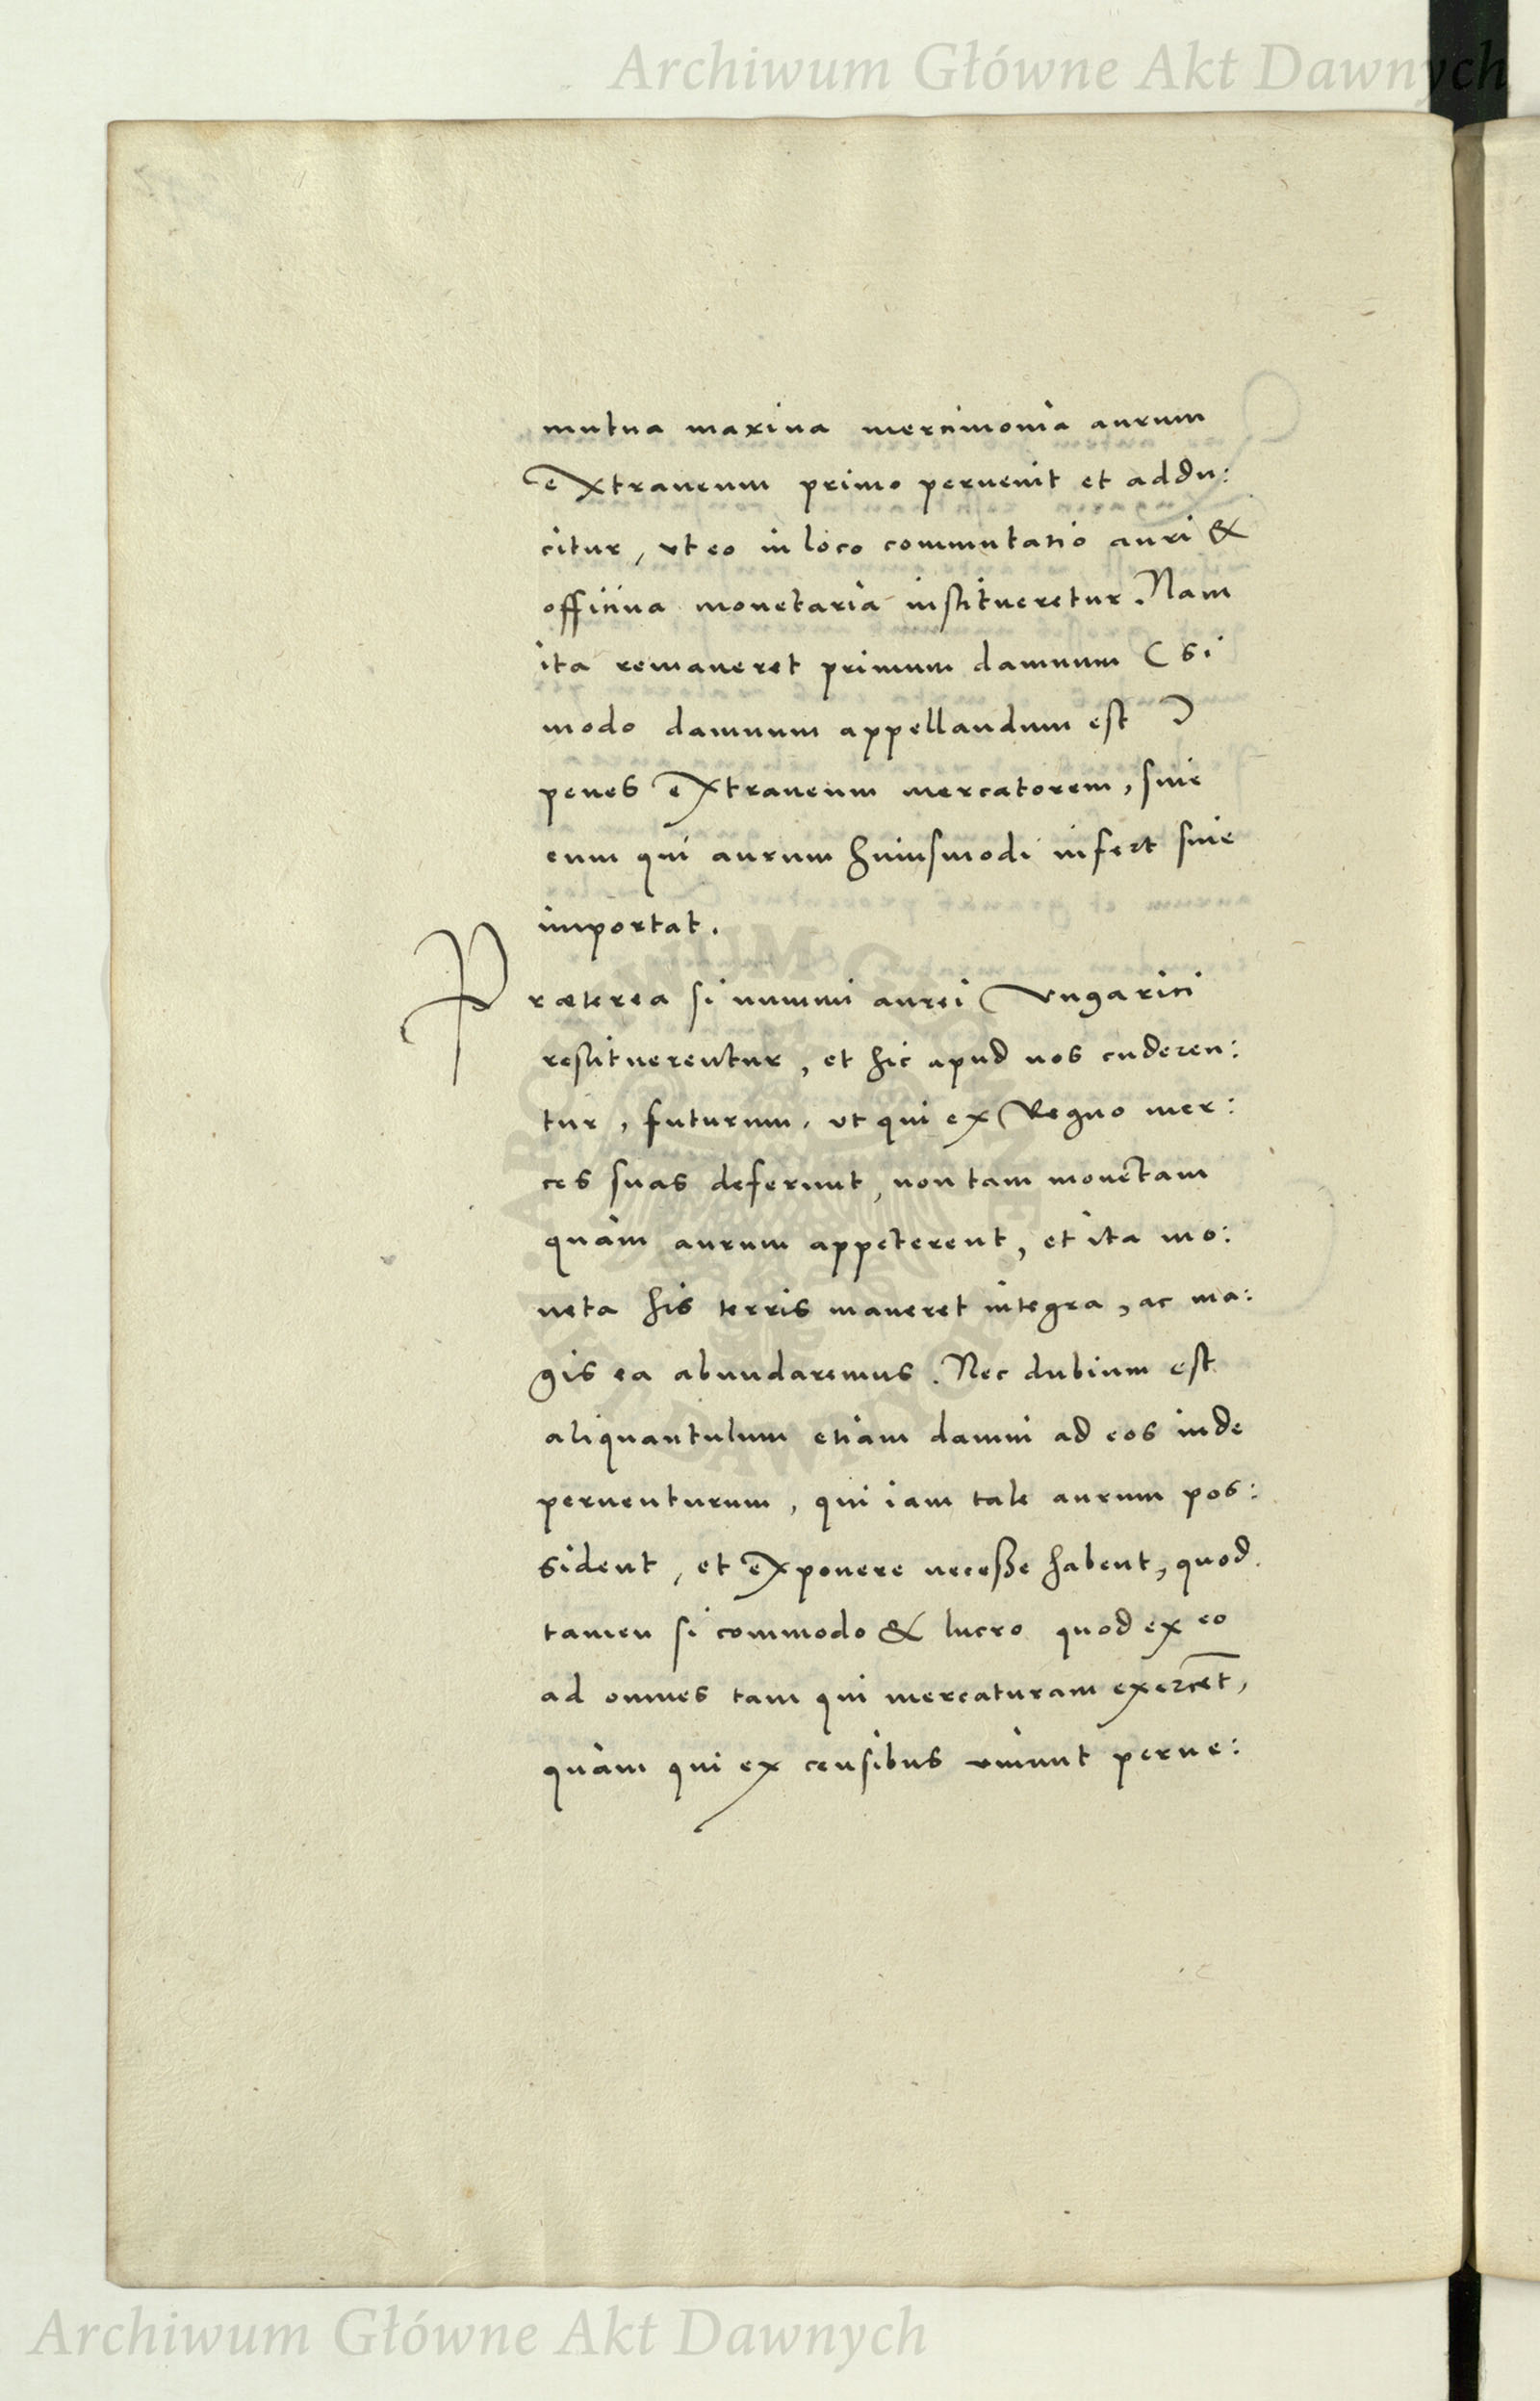 Archiwum Główne Akt Dawnych
mutua maxima mercimonia aurum
extraneum primo peruenit et addu:
citur, vt eo in loco commutatio auri &
officina monetaria institueretur. Nam
ita remaneret primum damnum (si
modo damnum appellandum est)
penes extraneum mercatorem, siue
eum qui aurum huiusmodi infert siue
importat.
Præterea si nummi aurei Vngarici
restituerentur, et hic apud nos cuderen:
tur, futurum, vt qui ex Regno mer:
ces suas deferunt, non tam monetam
quàm aurum appeterent, et ita mo:
neta his terris maneret integra, ac ma:
gis ea abundaremus. Nec dubium est
aliquantulum etiam damni ad eos inde
peruenturum, qui iam tale aurum pos:
sident, et exponere neceße habent, quod
tamen si commodo & lucro quod ex eo
ad omnes tam qui mercaturam exercēt,
quàm qui ex censibus viuunt perue:
ARCHIWUM GŁÓWNE
AKT DAWNYCH
Archiwum Główne Akt Dawnych